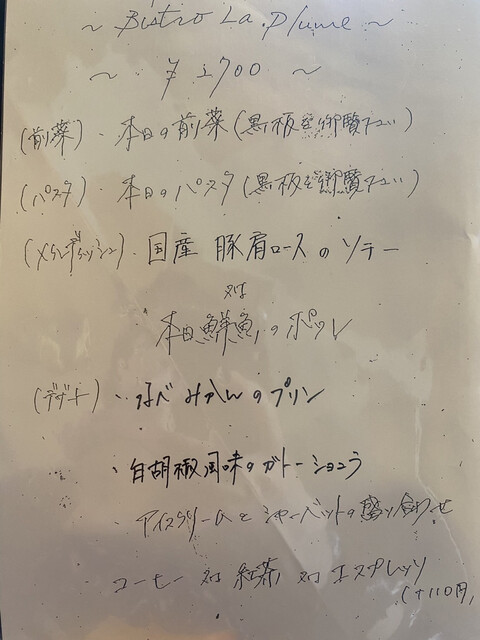 ～ Bistro La Plume ～
～ ¥ 2700 ～
(前菜)・本日の前菜(黒板を御覧下さい)
(パスタ)・本日のパスタ(黒板を御覧下さい)
(メインディッシュ)・国産 豚肩ロースのソテー
又は
本日鮮魚のポワレ
(デザート)・みかんのプリン
・白胡椒風味のガトーショコラ
・アイスクリームとシャーベットの盛り合わせ
コーヒー 又は 紅茶 又は エスプレッソ
(+110円)